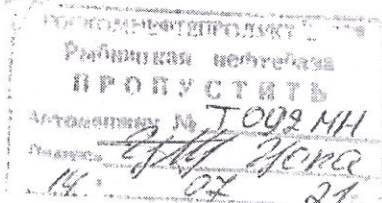 РОСКОМНЕФТЕПРОДУКТ
Рыбницкая нефтебаза
ПРОПУСТИТЬ
Автомашину № Т 092 МН
Подпись
14. 07 21